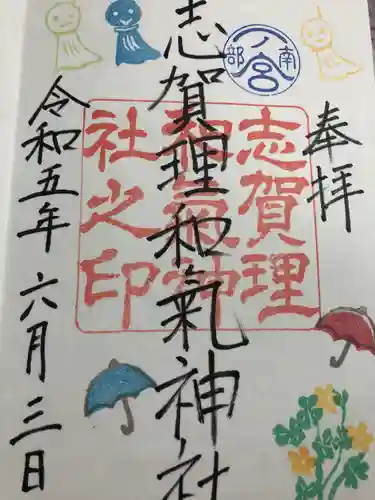 奉拝
志賀理和氣神社
令和五年六月三日
志賀理
和氣神
社之印
一ノ宮
南部